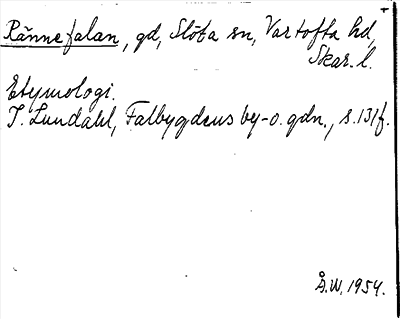 Rännefalan, gd, Slöta sn, Vartofta hd,
Skar. l.
Etymologi.
I. Lundahl, Falbygdens by-o. gdn., s. 131f.
Å.W. 1954.